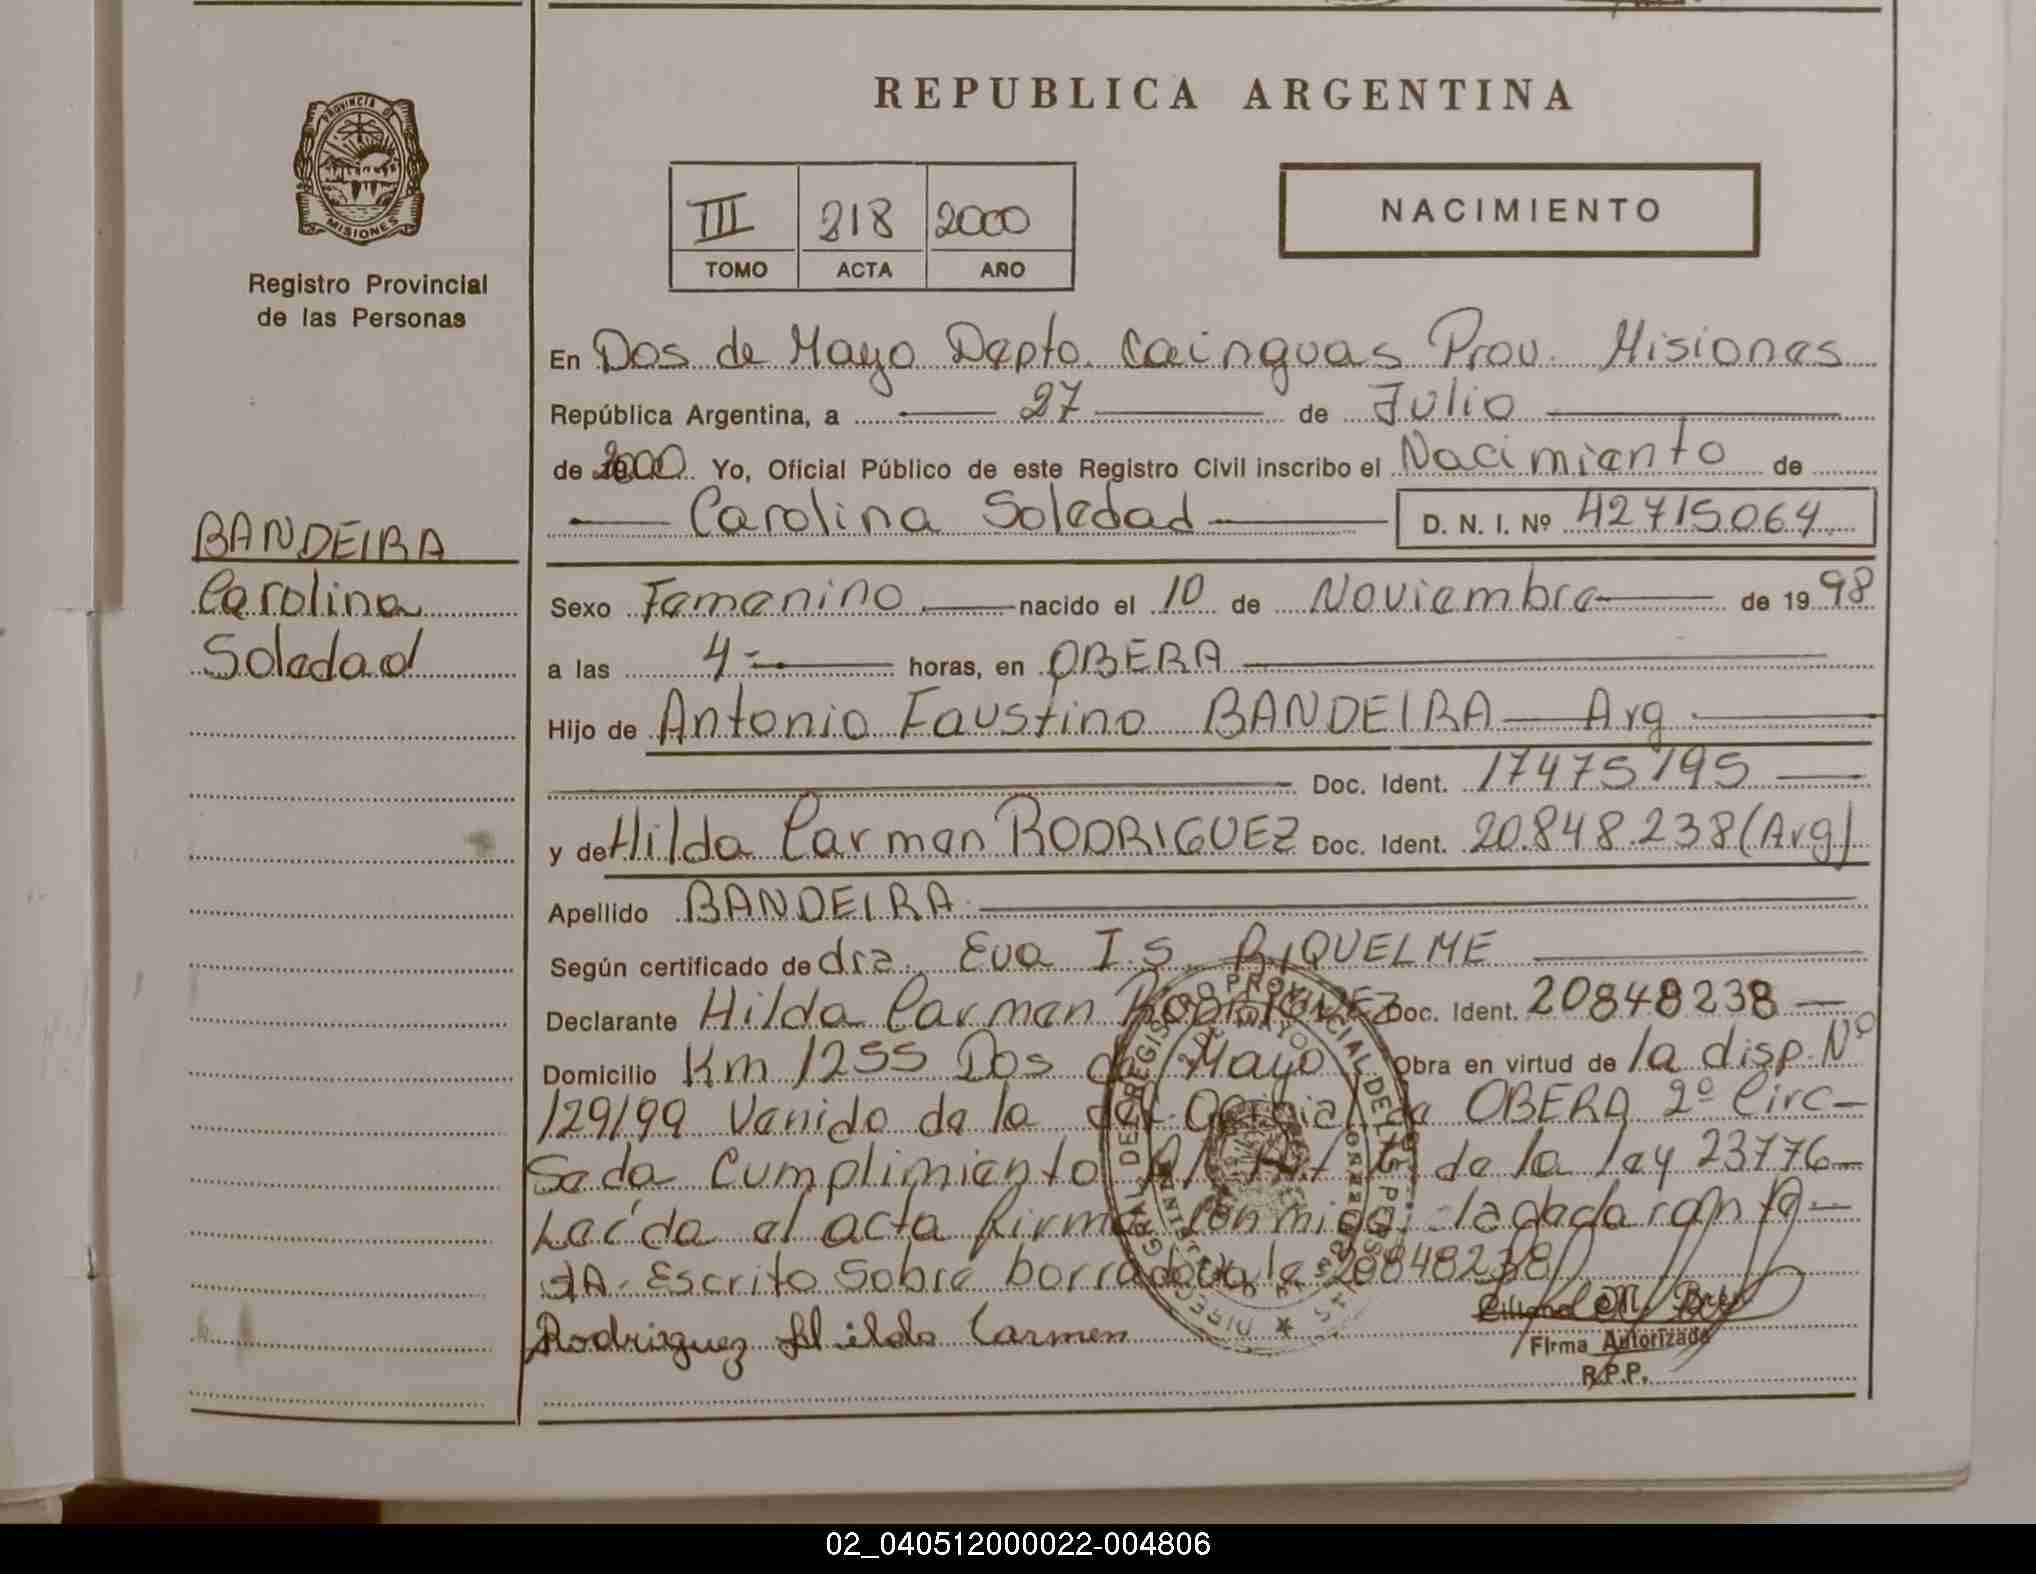 REPUBLICA ARGENTINA
PROVINCIA DE
MISIONES
Registro Provincial
de las Personas
III 218 2000
TOMO ACTA AÑO
NACIMIENTO
En Dos de Mayo Depto. Cainguas Prov. Misiones
República Argentina, a 27 de Julio
de 2000 Yo, Oficial Público de este Registro Civil inscribo el Nacimiento de
Carolina Soledad D. N. I. Nº 42715064
BANDEIRA
Carolina
Soledad
Sexo Femenino nacido el 10 de Noviembre de 1998
a las 4- horas, en OBERA
Hijo de Antonio Faustino BANDEIRA Arg
Doc. Ident. 17475195
y de Hilda Carmen RODRIGUEZ Doc. Ident. 20.848.238 (Arg)
Apellido BANDEIRA
Según certificado de dra. Eva I.S. RIQUELME
Declarante Hilda Carmen RODRIGUEZ Doc. Ident. 20848238
Domicilio Km 1255 Dos de Mayo Obra en virtud de la disp. Nº
129/99 Venido de la del. de OBERA 2º Circ-
Se da Cumplimiento Al Art de la ley 23776-
Leída el acta firma conmigo la declarante-
Escrito sobre borrado vale 20848238
Rodriguez Hilda Carmen
Firma Autorizada
R.P.P.
DIREC GRAL DEL REGISTRO PROVINCIAL DE LAS PERSONAS
02_040512000022-004806